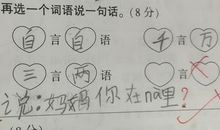 再选一个词语说一句话。(8分)
自言自语 千言万
三言两语 言
说:妈妈你在na里?